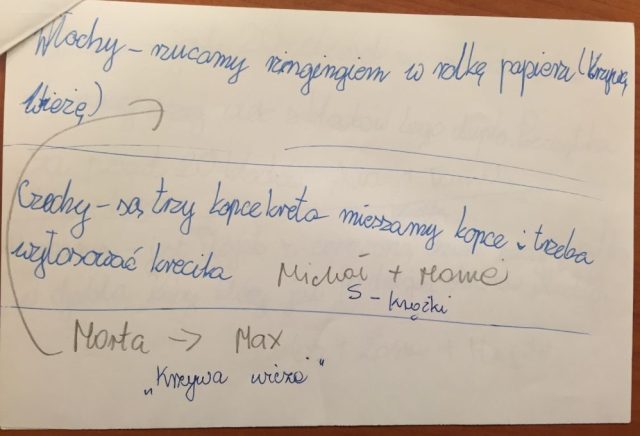 Włochy - rzucamy ringingiem w rolkę papieru (Krzywą
Wieżę)
Czechy - są trzy kopce kreta mieszamy kopce i trzeba
wylosować krecika
Michał + Mamé
S - krążki
Marta -> Max
„Krzywa wieża"